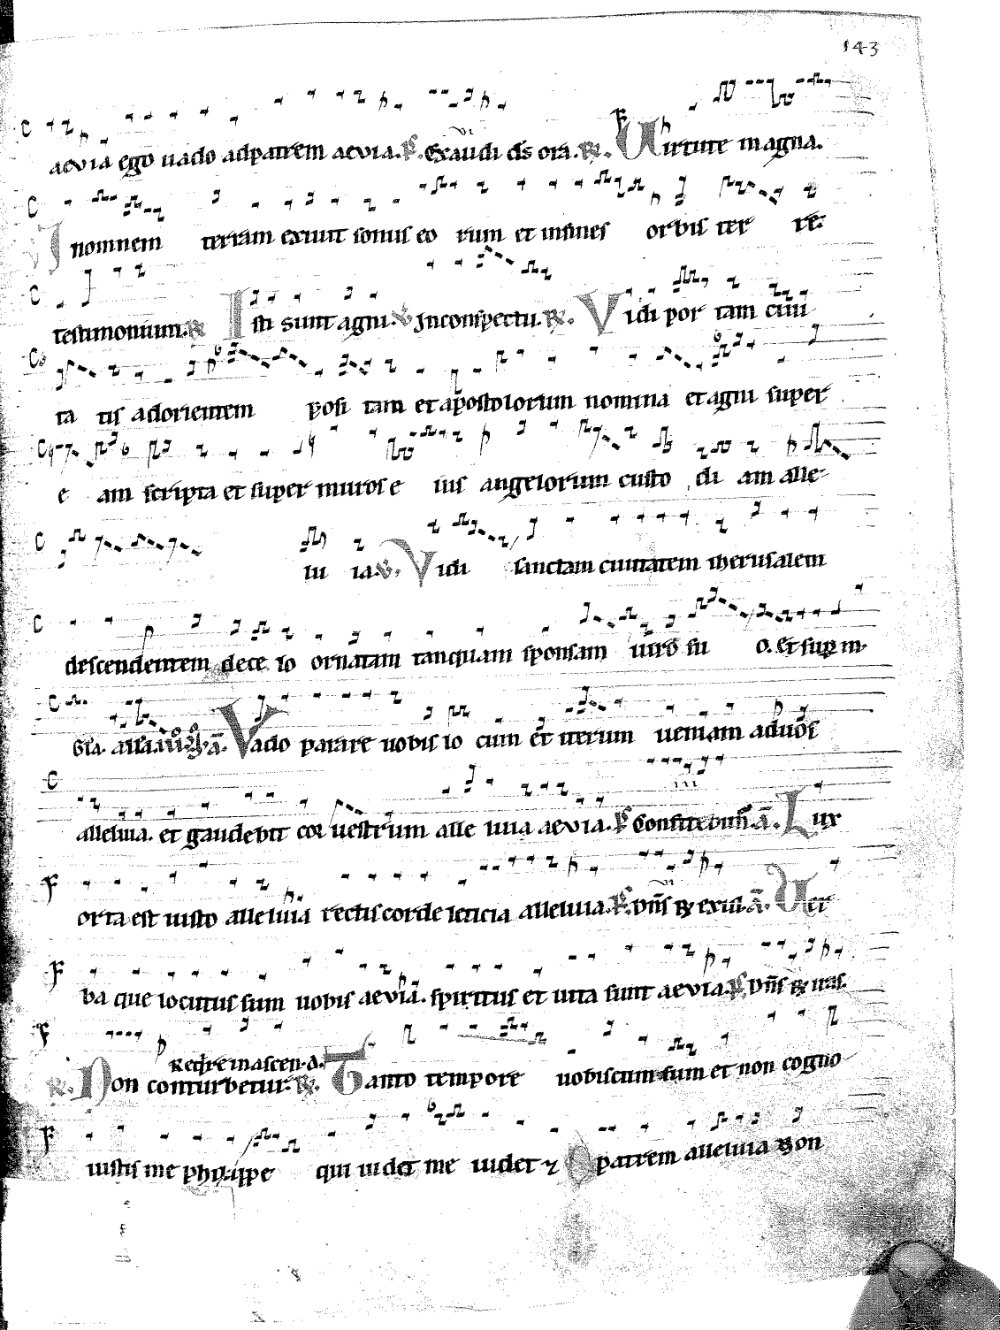 143
aevia ego vado adpatrem aevia. Exaudi ds ora. Virtute magna.
In omnem terram exivit sonus eo rum et infines orbis ter re.
testimonium. Isti sunt agni. Inconspectu. Vidi por tam civi
ta tis adorientem posi tam et apostolorum nomina et agni super
e am scripta et super muros e ius angelorum custo di am alle
lu ia. Vidi sanctam civitatem iherusalem
descendentem dece lo ornatam tanquam sponsam viro su o. et sup m.
Vado parare vobis lo cum et iterum veniam advos
alleluia. et gaudebit cor vestrum alle luia aevia. Confitebim. a. Lux
orta est iusto alleluia rectis corde leticia alleluia. Dns rex exul. a. Ver
ba que locutus sum vobis aevia. spiritus et vita sunt aevia. Dns rex iras.
Non conturbetur. Tanto tempore vobiscum sum et non cogno
vistis me phylippe qui videt me videt Patrem alleluia Non